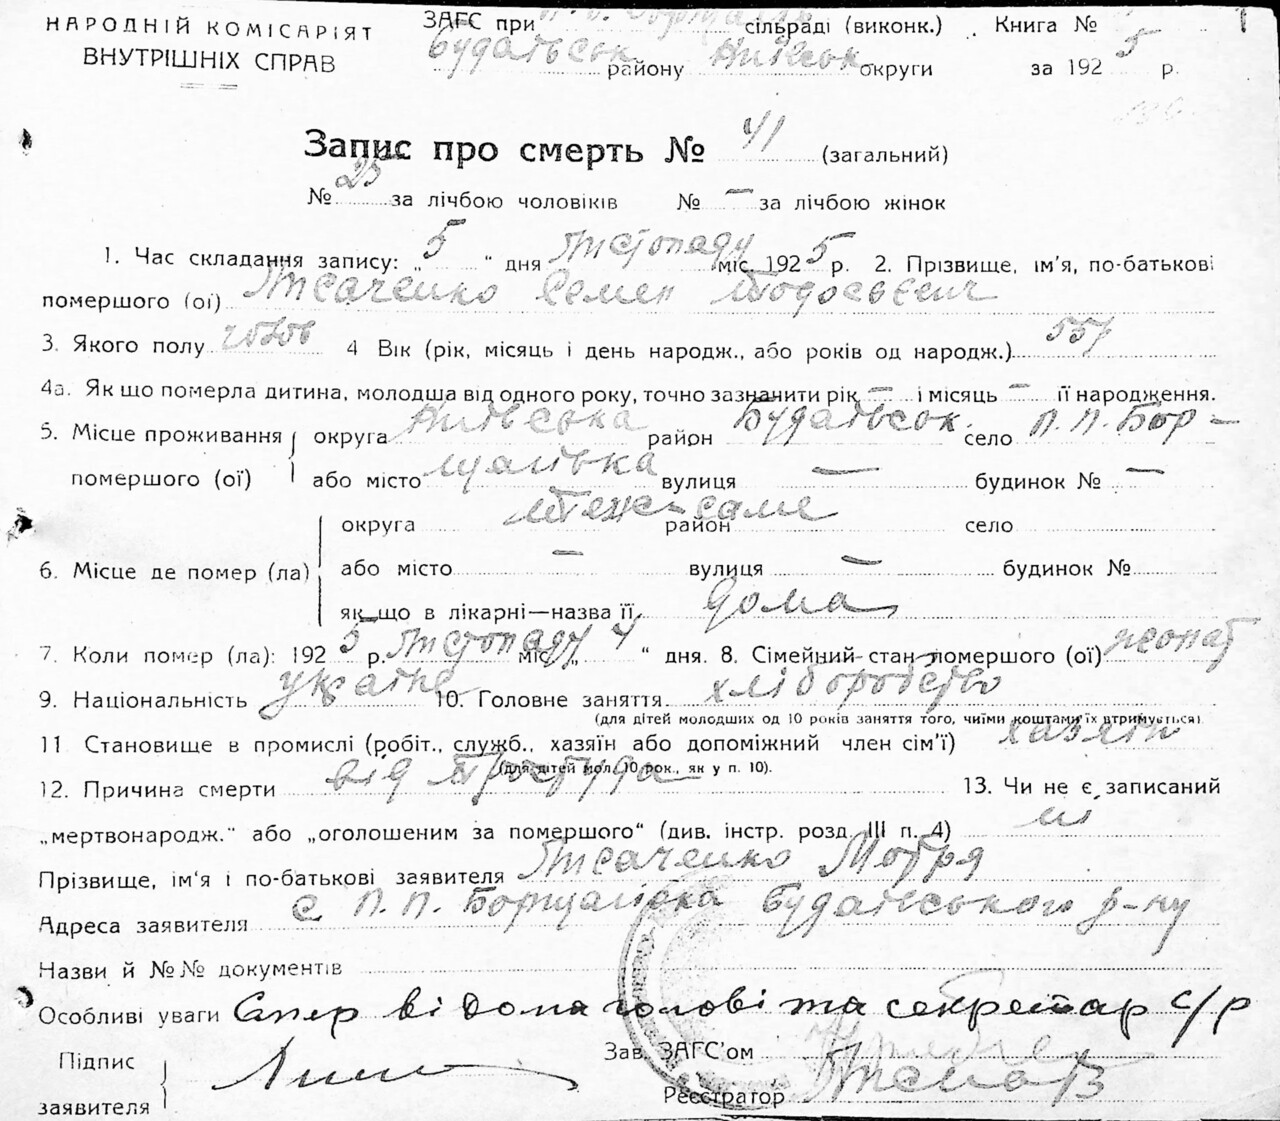 НАРОДНІЙ КОМІСАРІЯТ
ВНУТРІШНІХ СПРАВ
ЗАГС при П. П. Борщагівськ сільраді (виконк.) Книга №
Будаївськ району Київськ округи за 1925 р.
Запис про смерть № 41 (загальний)
№ 23 за лічбою чоловіків № — за лічбою жінок
1. Час складання запису: „5“ дня Листопаду міс. 1925 р. 2. Прізвище, ім'я, по-батькові
помершого (ої) Ткаченко Семен Тодосьевич
3. Якого полу чолов 4 Вік (рік, місяць і день народж., або років од народж.) 55
4а. Як що померла дитина, молодша від одного року, точно зазначити рік — і місяць — її народження.
5. Місце проживання округа Київська район Будаївськ. село П. П. Бор-
помершого (ої) або місто щагівка вулиця — будинок № —
округа теж саме район село
6. Місце де помер (ла) або місто — вулиця — будинок №
як що в лікарні—назва її дома
7. Коли помер (ла): 1925 р. Листопаду міс. „4“ дня. 8. Сімейний стан помершого (ої) жонат
9. Національність україне 10. Головне заняття хліборобство
(для дітей молодших од 10 років заняття того, чиїми коштами їх втримується)
11 Становище в промислі (робіт., служб., хазяїн або допоміжний член сім'ї) хазяїн
(для дітей мол. 10 рок., як у п. 10).
12. Причина смерти від простуда 13. Чи не є записаний
„мертвонародж.“ або „оголошеним за помершого“ (див. інстр. розд. III п. 4) ні
Прізвище, ім'я і по-батькові заявителя Ткаченко Мотря
Адреса заявителя с. П. П. Борщагівка Будаївського р-ну
Назви й №№ документів
Особливі уваги Смер відома голові та секретар с/р
Підпис
заявителя
Зав. ЗАГС'ом
Реєстратор